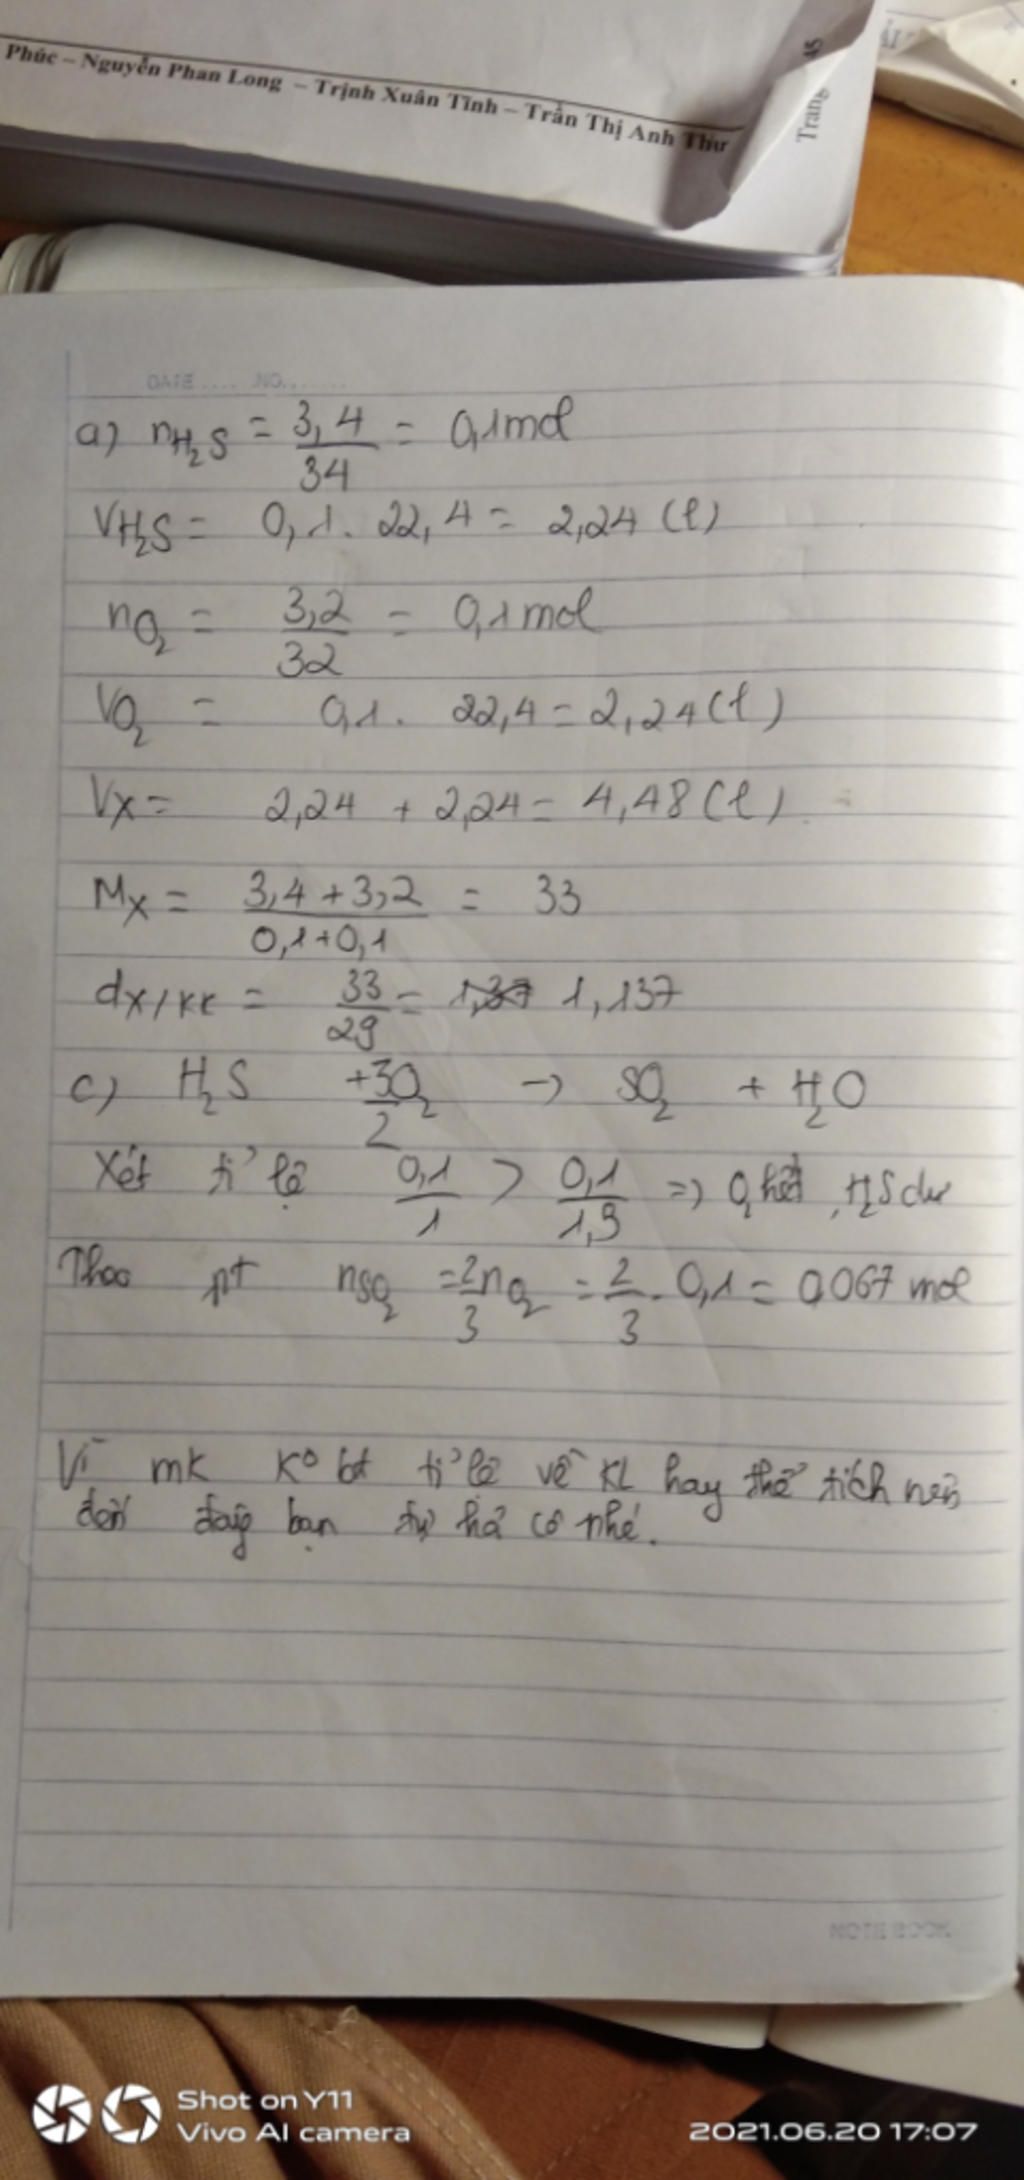 Phúc – Nguyễn Phan Long – Trịnh Xuân Tĩnh – Trần Thị Anh Thư
Trang 45
DATE .... NO.......
a) nH₂S = 3,4/34 = 0,1mol
VH₂S = 0,1. 22,4 = 2,24 (l)
nO₂ = 3,2/32 = 0,1mol
VO₂ = 0,1. 22,4 = 2,24 (l)
VX = 2,24 + 2,24 = 4,48 (l)
MX = 3,4 + 3,2/0,1+0,1 = 33
dX/KK = 33/29 = 1,37 1,137
c) H₂S +3O₂/2 → SO₂ + H₂O
Xét tỉ lệ 0,1/1 > 0,1/1,5 => O₂ hết, H₂S dư
Theo pt nSO₂ = 2/3 nO₂ = 2/3 . 0,1 = 0,067 mol
Vì mk ko bt tỉ lệ về KL hay thể tích nên
đến đây bạn tự hỏi cô nhé.
NOTE BOOK
Shot on Y11
Vivo AI camera
2021.06.20 17:07